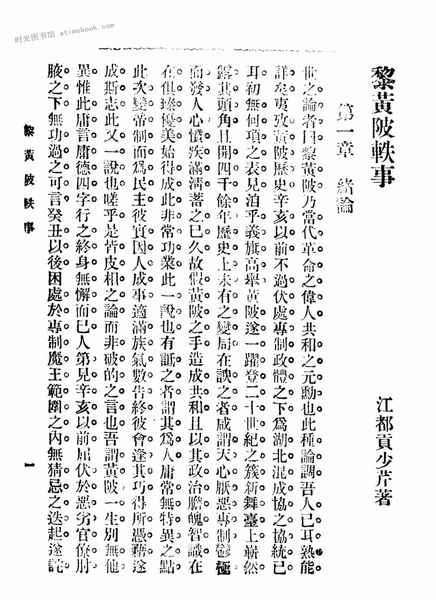 时光图书馆 etimebook.com
黎黃陂軼事
江都貢少芹著
第一章 緒論
世之論者曰黎黃陂乃當代革命之偉人共和之元勳也此種論調吾人已耳熟能
詳矣夷攷黃陂歷史辛亥以前不過伏處專制政體之下爲湖北混成協之協統已
耳初無何項之表見洎乎義旗高舉黃陂遂一躍登二十世紀之簇新舞臺上嶄然
露其頭角且開四千餘年歷史上未有之變局在諛之者咸謂天心厭惡專制鬱極
而發人心憤疾滿淸蓄之已久故假黃陂之手造成共和且以其政治膽魄智識在
在俱臻優美始得成此非常功業此一說也有誣之者謂其爲人庸常無特異之點
此次變帝制而爲民主彼實因人成事適滿族氣數告終彼會逢其巧得所憑藉遂
成斯志此又一說也嗟乎是皆皮相之論而非破的之言也吾謂黃陂一生別無他
異惟此庸言庸德四字行之終身無懈而已人第見辛亥以前屈伏於惡劣官僚肘
腋之下無功過之可言癸丑以後困處於專制魔王範圍之內無猜忌之迭起遂詫
黎黃陂軼事
一